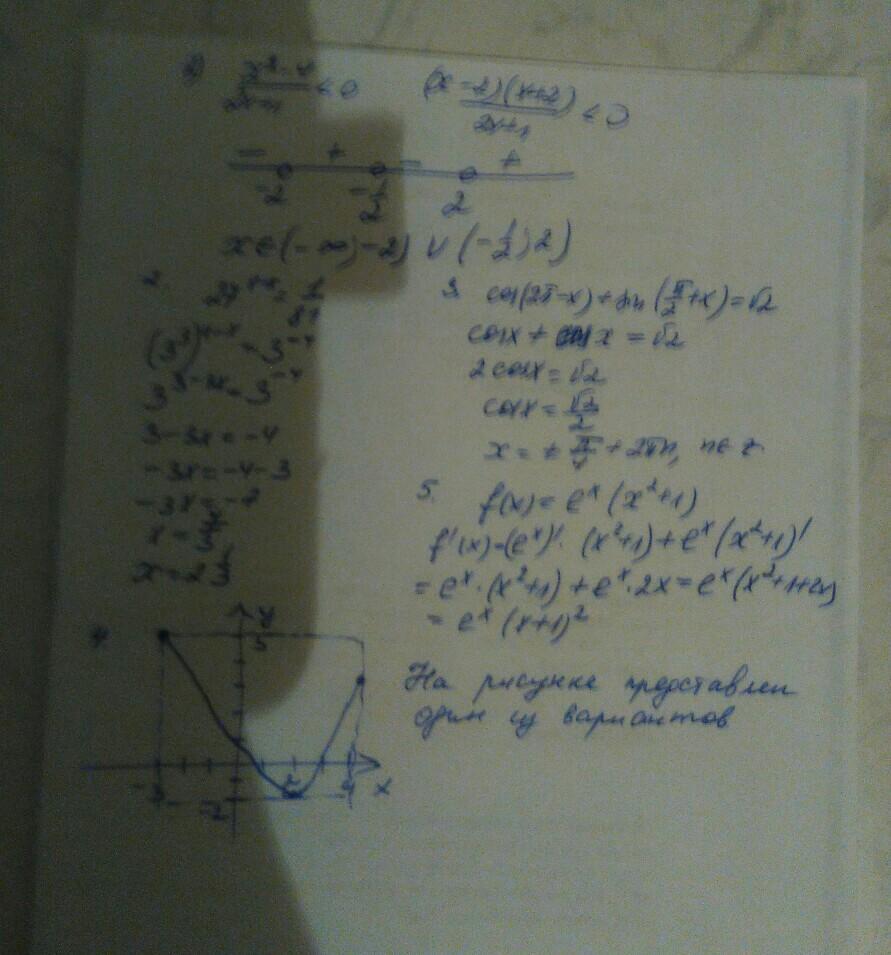 x² - 4 < 0 (x - 2)(x + 2) < 0
2x + 1
- + - +
-2 -½ 2
x ∈ (-∞; -2) ∪ (-½; 2)
2.
(3³) = 3⁻⁴
3³⁻³ˣ = 3⁻⁴
3 - 3x = -4
-3x = -4 - 3
x =
3. cos(2π - x) + sin(π/2 + x) = √2
cosx + cosx = √2
2cosx = √2
cosx = √2/2
x = ± π/4 + 2πn, n ∈ z
5. f(x) = eˣ(x² + 1)
f'(x) = (eˣ)' · (x² + 1) + eˣ(x² + 1)'
= eˣ · (x² + 1) + eˣ · 2x = eˣ(x² + 1 + 2x)
= eˣ(x + 1)²
4
y
5
-3 4 x
-2
На рисунке представлен
один из вариантов